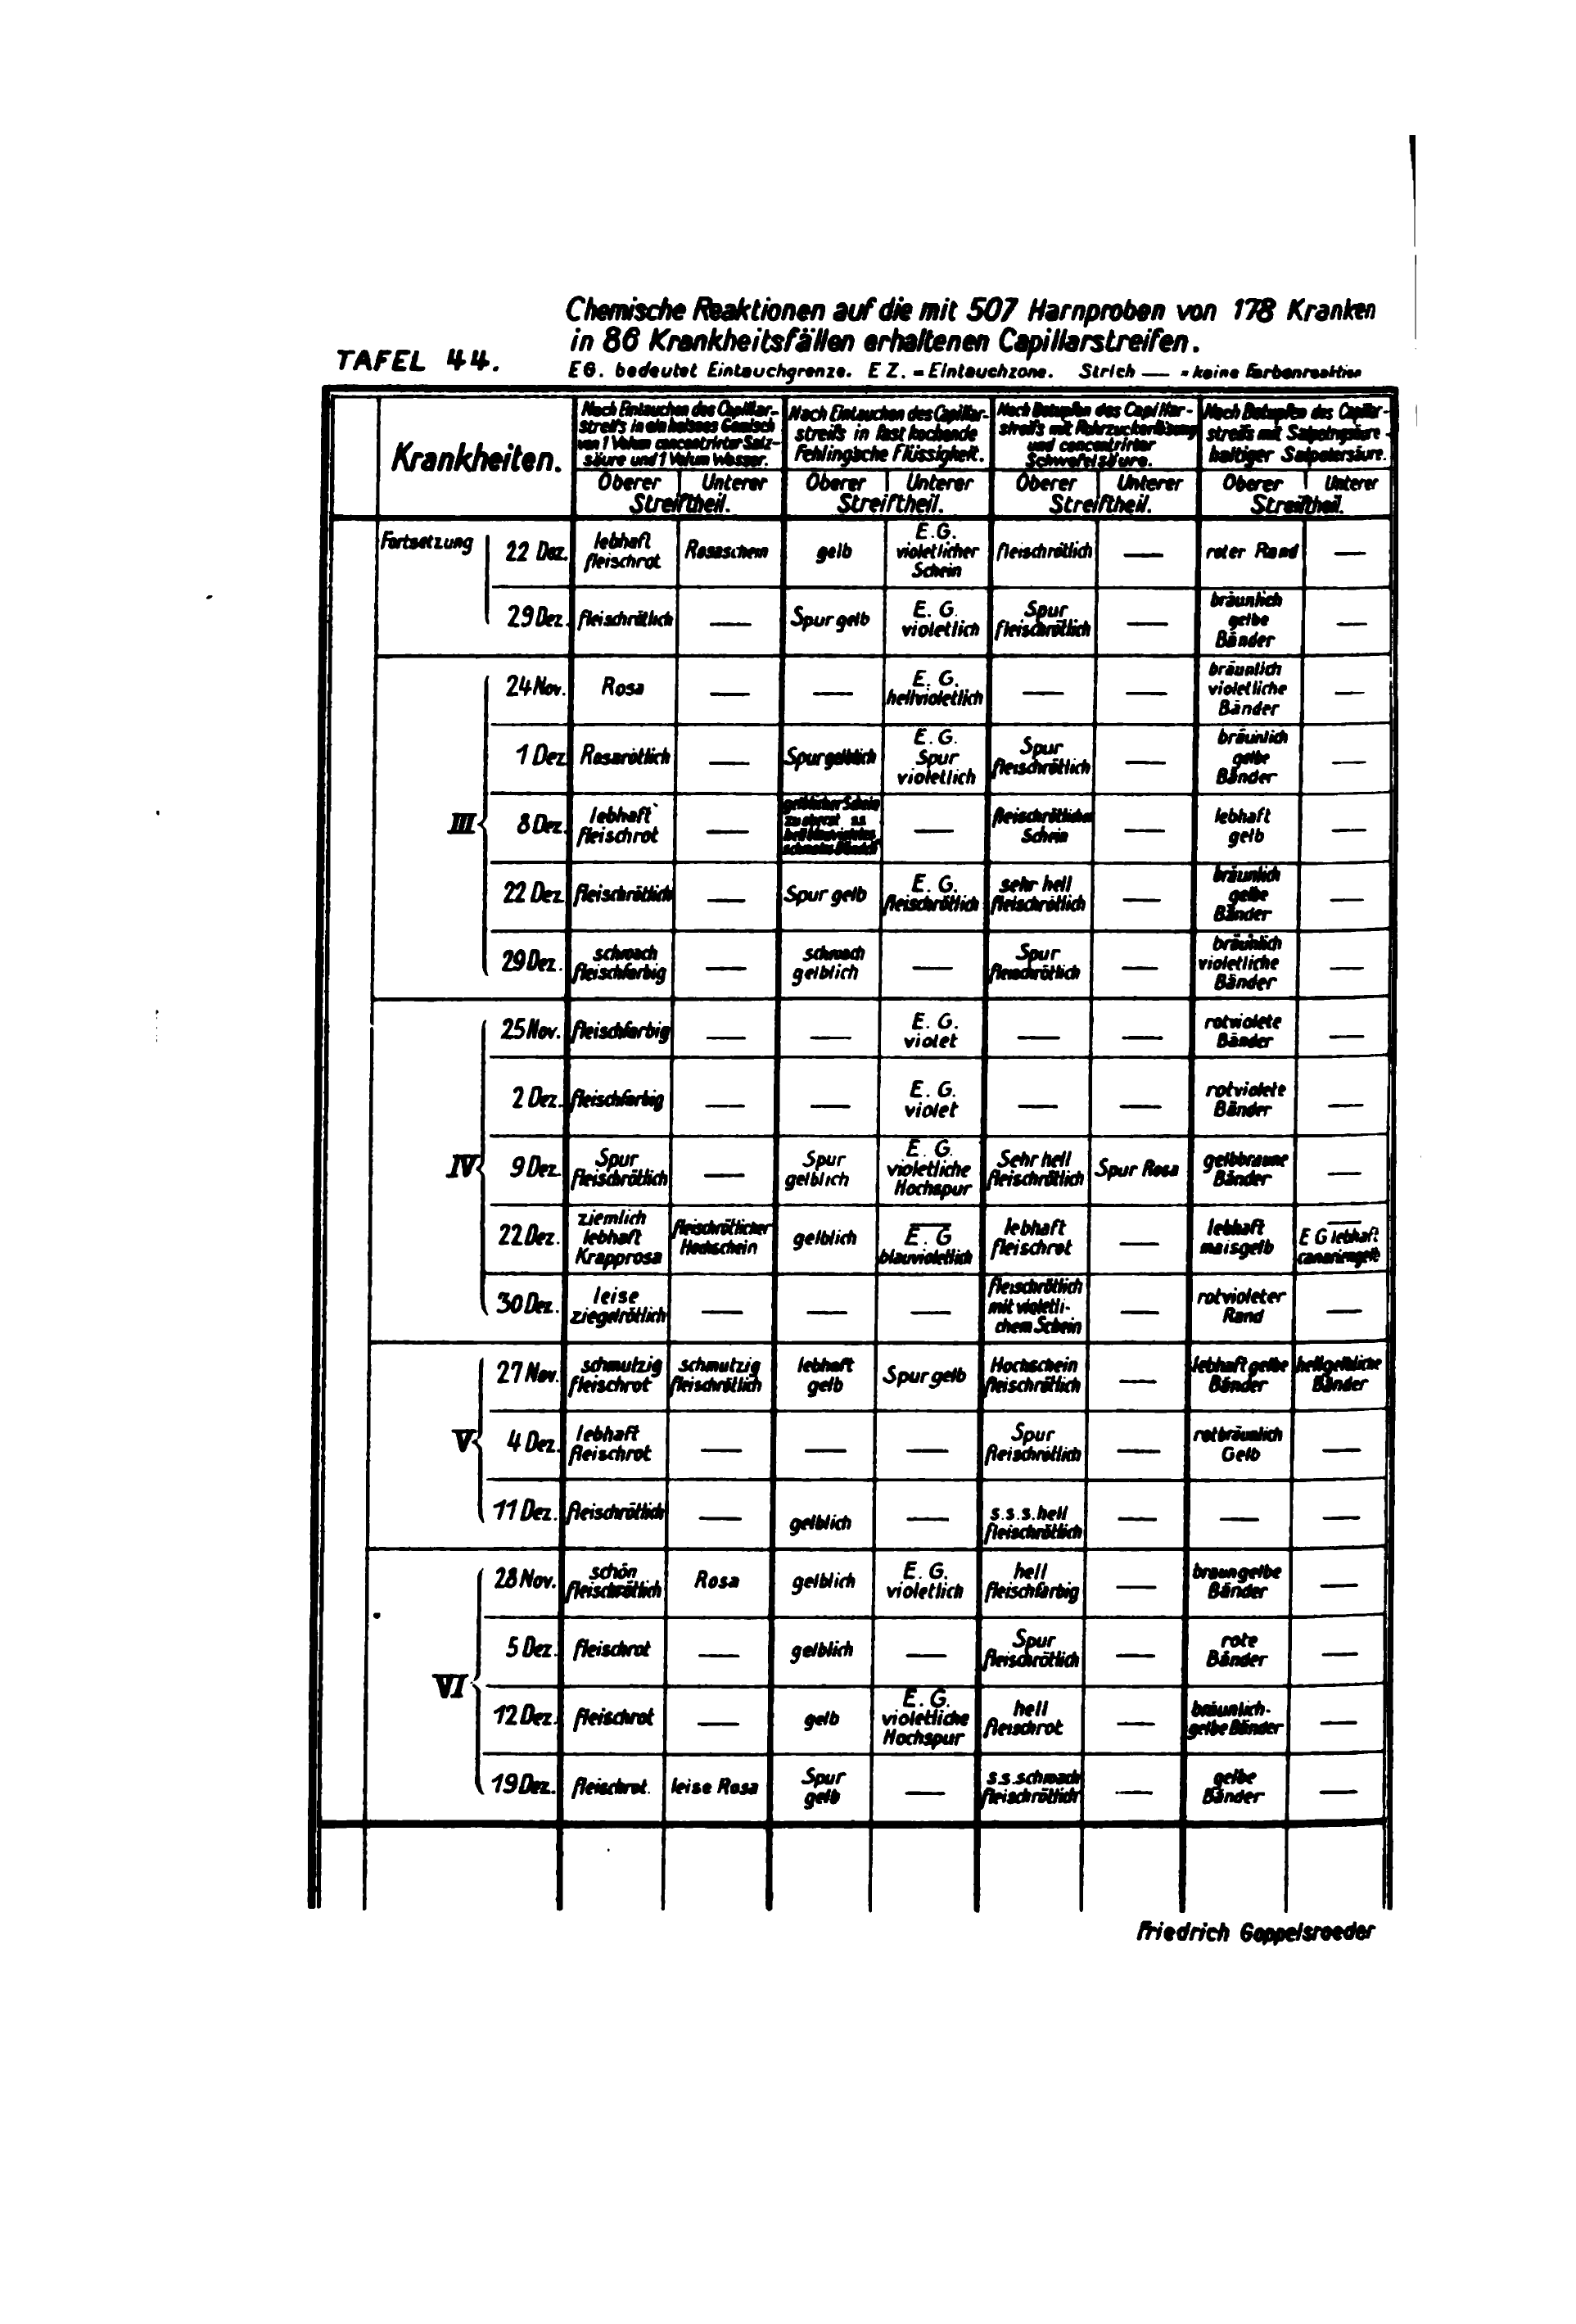 Chemische Reaktionen auf die mit 507 Harnproben von 178 Kranken
in 86 Krankheitsfällen erhaltenen Capillarstreifen.
TAFEL 44.
EG. bedeutet Eintauchgrenze. E Z. = Eintauchzone. Strich — = keine Farbenreaktion
Krankheiten.
Nach Eintauchen des Capillar-
streifs in ein heisses Gemisch
von 1 Volum concentrirter Salz-
säure und 1 Volum Wasser.
Nach Eintauchen des Capillar-
streifs in fast kochende
Fehling'sche Flüssigkeit.
Nach Betupfen des Capillar-
streifs mit Rohrzuckerlösung
und concentrirter
Schwefelsäure.
Nach Betupfen des Capillar-
streifs mit Salpetrigsäure-
haltiger Salpetersäure.
Oberer Unterer Oberer Unterer Oberer Unterer Oberer Unterer
Streiftheil. Streiftheil. Streiftheil. Streiftheil.
Fortsetzung
22 Dez. lebhaft fleischrot Rosaschein gelb E.G. violetlicher Schein fleischrötlich — roter Rand —
29 Dez. fleischrötlich — Spur gelb E. G. violetlich Spur fleischrötlich — bräunlich gelbe Bänder —
III
24 Nov. Rosa — — E. G. hellvioletlich — — bräunlich violetliche Bänder —
1 Dez. Rosarötlich — Spur gelblich E. G. Spur violetlich Spur fleischrötlich — bräunlich gelbe Bänder —
8 Dez. lebhaft fleischrot — gelblicher Schein zu oberst s.s. schmales — fleischrötlicher Schein — lebhaft gelb —
22 Dez. fleischrötlich — Spur gelb E. G. fleischrötlich sehr hell fleischrötlich — bräunlich gelbe Bänder —
29 Dez. schwach fleischfarbig — schwach gelblich — Spur fleischrötlich — bräunlich violetliche Bänder —
IV
25 Nov. fleischfarbig — — E. G. violet — — rotviolete Bänder —
2 Dez. fleischfarbig — — E. G. violet — — rotviolete Bänder —
9 Dez. Spur fleischrötlich — Spur gelblich E. G. violetliche Hochspur Sehr hell fleischrötlich Spur Rosa gelbbraune Bänder —
22 Dez. ziemlich lebhaft Krapprosa fleischrötlicher Hochschein gelblich E. G blauvioletlich lebhaft fleischrot — lebhaft maisgelb E G lebhaft canariengelb
30 Dez. leise ziegelrötlich — — — fleischrötlich mit violetli- chem Schein — rotvioleter Rand —
V
27 Nov. schmutzig fleischrot schmutzig fleischrötlich lebhaft gelb Spur gelb Hochschein fleischrötlich — lebhaft gelbe Bänder hellgelbliche Bänder
4 Dez. lebhaft fleischrot — — — Spur fleischrötlich — rotbräunlich Gelb —
11 Dez. fleischrötlich — gelblich — s.s.s. hell fleischrötlich — — —
VI
28 Nov. schön fleischrötlich Rosa gelblich E. G. violetlich hell fleischfarbig — braungelbe Bänder —
5 Dez. fleischrot — gelblich — Spur fleischrötlich — rote Bänder —
12 Dez. fleischrot — gelb E. G. violetliche Hochspur hell fleischrot — bräunlich- gelbe Bänder —
19 Dez. fleischrot. leise Rosa Spur gelb — s.s. schwach fleischrötlich — gelbe Bänder —
Friedrich Goppelsroeder